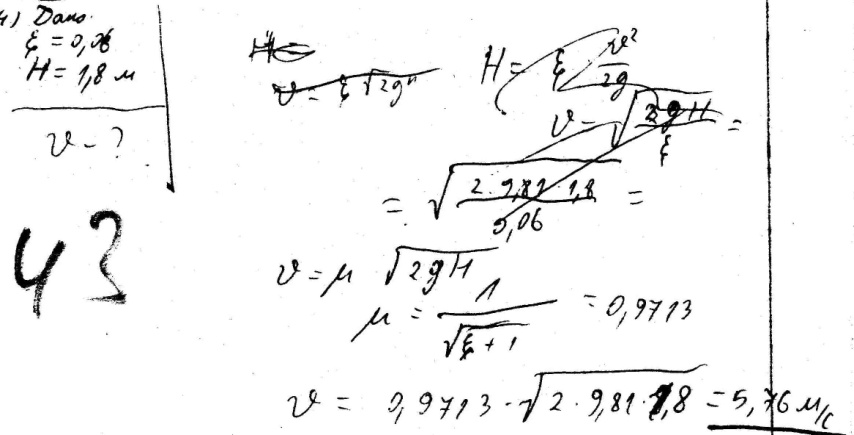 4) Дано
ξ = 0,06
H = 1,8 м
v - ?
43
v = ξ √2gH
H = ξ v²/2g
v = √(2gH/ξ) =
= √(2·9,81·1,8/0,06) =
v = μ √2gH
μ = 1/√(ξ+1) = 0,9713
v = 0,9713 · √2·9,81·1,8 = 5,76 м/с